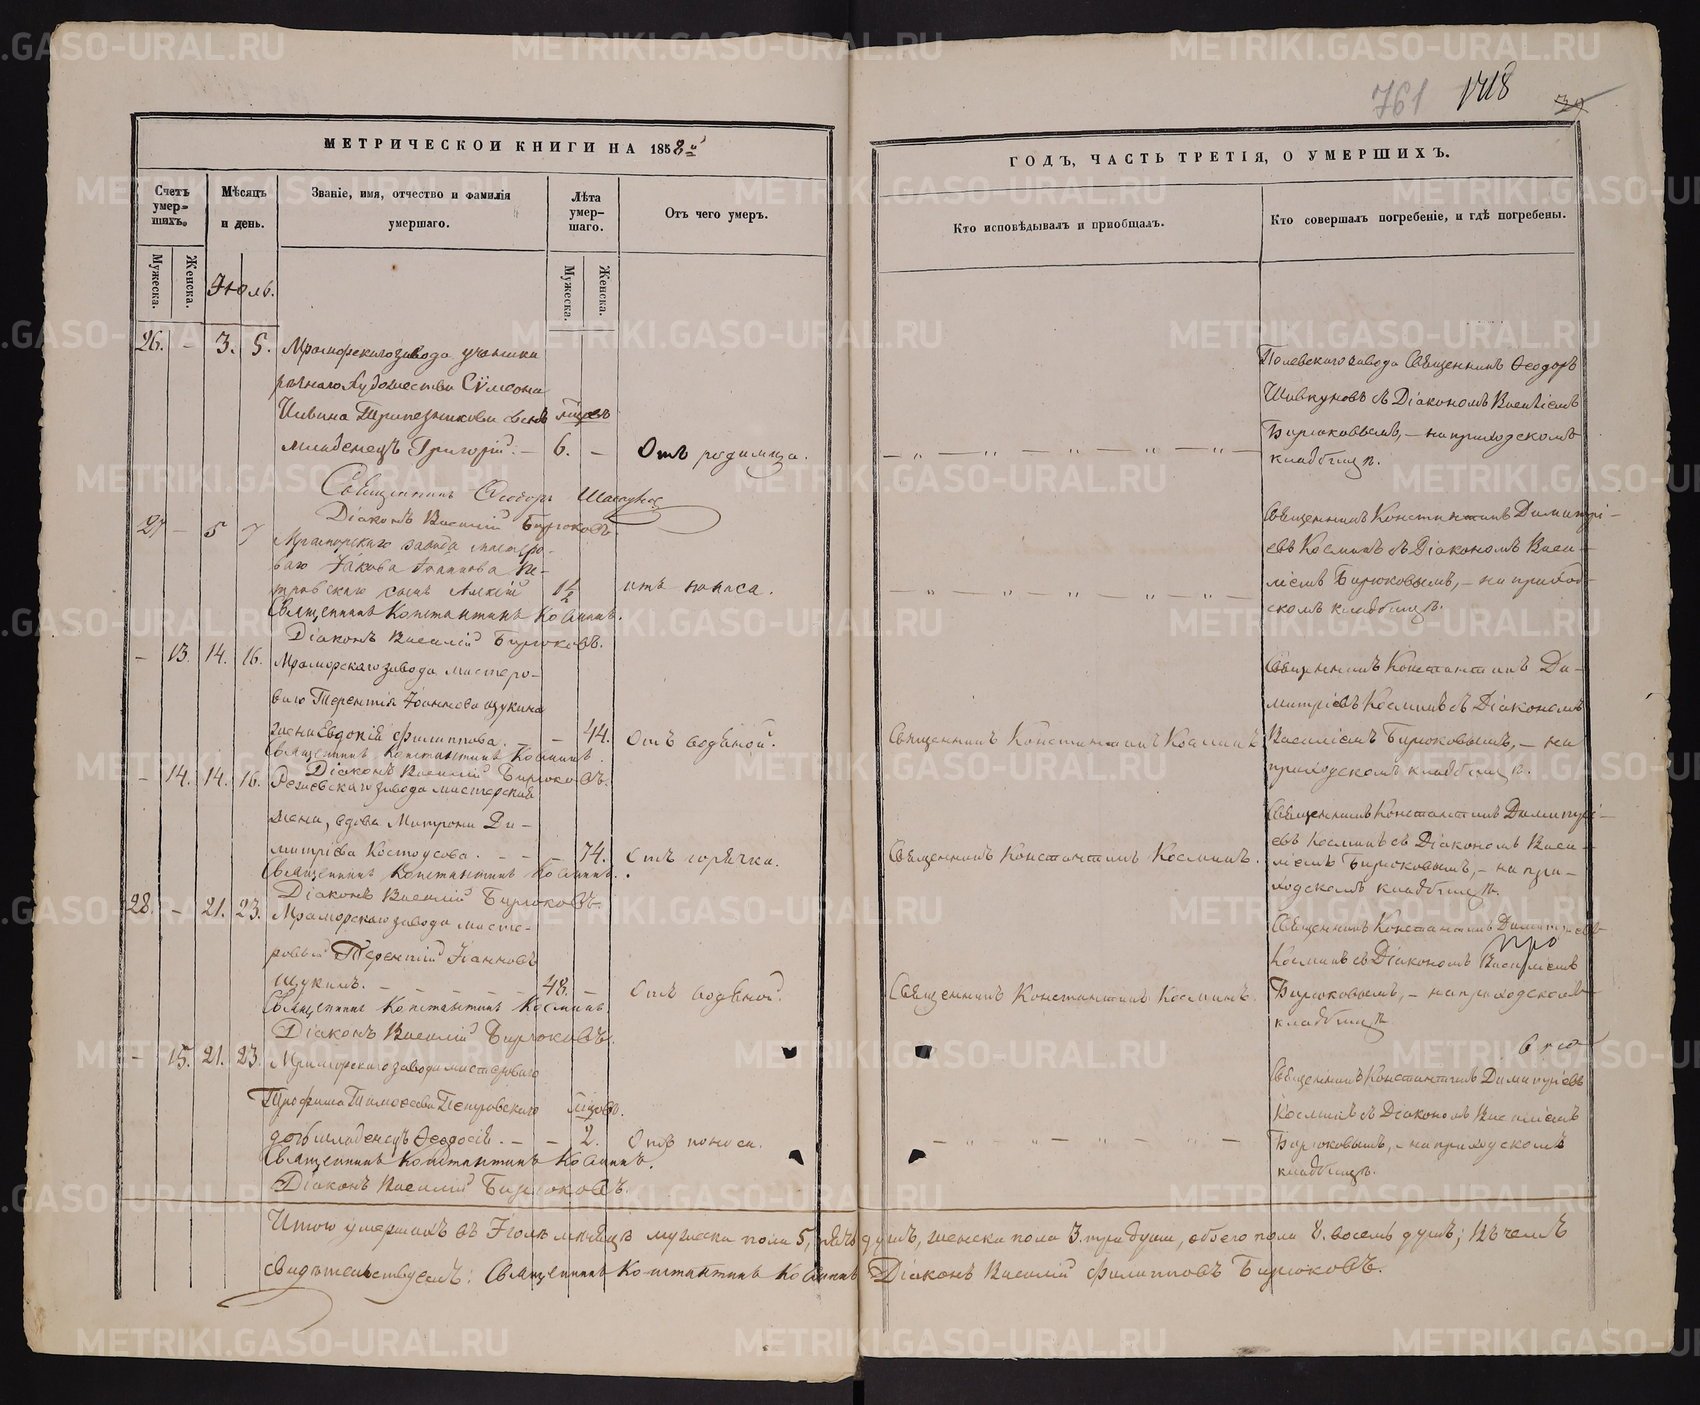 761 1718 39
МЕТРИЧЕСКОИ КНИГИ НА 1858й
Счетъ умер=шихъ.
Мужеска.
Женска.
Мѣсяцъ и день.
Званіе, имя, отчество и фамилія умершаго.
Лѣта умер-шаго.
Мужеска.
Женска.
Отъ чего умеръ.
Іюль.
26. - 3. 5. Мраморскаго завода ученика
рѣзнаго Художества Сѵмеона
Трапезникова сынъ
младенецъ Григорій. - 6. - Отъ родимца.
Священникъ Ѳеодоръ
Діаконъ Василій Бирюковъ.
27 - 5 7 Мраморскаго завода мастеро-
ваго Іакова Іоаннова Пе-
тровскаго сынъ 1½ отъ поноса.
Священникъ Константинъ Косминъ.
Діаконъ Василій Бирюковъ.
- 13. 14. 16. Мраморскаго завода мастеро-
ваго Терентія Іоаннова Щукина
жена Евдокія Филиппова. - 44. Отъ водяной.
Священникъ Константинъ Косминъ.
Діаконъ Василій Бирюковъ.
- 14. 14. 16. завода мастерская
жена, вдова Матрона Ди-
митріева Костоусова. - - 74. Отъ горячки.
Священникъ Константинъ Косминъ.
Діаконъ Василій Бирюковъ.
28. - 21. 23. Мраморскаго завода масте-
ровый Терентій Іоанновъ
Щукинъ. - - - - - 48. - Отъ водяной.
Священникъ Константинъ Косминъ
Діаконъ Василій Бирюковъ.
- 15. 21. 23. Мраморскаго завода мастероваго
Трофима Тимоѳеева Петровскаго
дочь младенецъ Ѳеодосія. - - 2. Отъ поноса.
Священникъ Константинъ Косминъ.
Діаконъ Василій Бирюковъ.
ГОДЪ, ЧАСТЬ ТРЕТІЯ, О УМЕРШИХЪ.
Кто исповѣдывалъ и приобщалъ.
Кто совершалъ погребеніе, и гдѣ погребены.
Полевскаго завода Священникъ Ѳеодоръ
съ Діакономъ Василіемъ
Бирюковымъ, - на приходскомъ
кладбищѣ.
Священникъ Константинъ Димитрі-
евъ Косминъ съ Діакономъ Васи-
ліемъ Бирюковымъ, - на приход-
скомъ кладбищѣ.
Священникъ Константинъ Ди-
митріевъ Косминъ съ Діакономъ
Священникъ Константинъ Косминъ Василіемъ Бирюковымъ, - на
приходскомъ кладбищѣ.
Священникъ Константинъ Димитрі-
евъ Косминъ съ Діакономъ Васи-
Священникъ Константинъ Косминъ. ліемъ Бирюковымъ, - на при-
ходскомъ кладбищѣ.
Священникъ Константинъ
Косминъ съ Діакономъ Василіемъ
Священникъ Константинъ Косминъ. Бирюковымъ, - на приходскомъ
кладбищѣ.
Священникъ Константинъ Димитріевъ
Косминъ съ Діакономъ Василіемъ
Бирюковымъ, - на приходскомъ
кладбищѣ.
Итого умершихъ въ Іюлѣ мѣсяцѣ мужеска пола 5, пять душъ, женска пола 3. три души, обоего пола 8. восемь душъ; въ чемъ
свидѣтельствуемъ: Священникъ Константинъ Косминъ Діаконъ Василій Филипповъ Бирюковъ.
METRIKI.GASO-URAL.RU